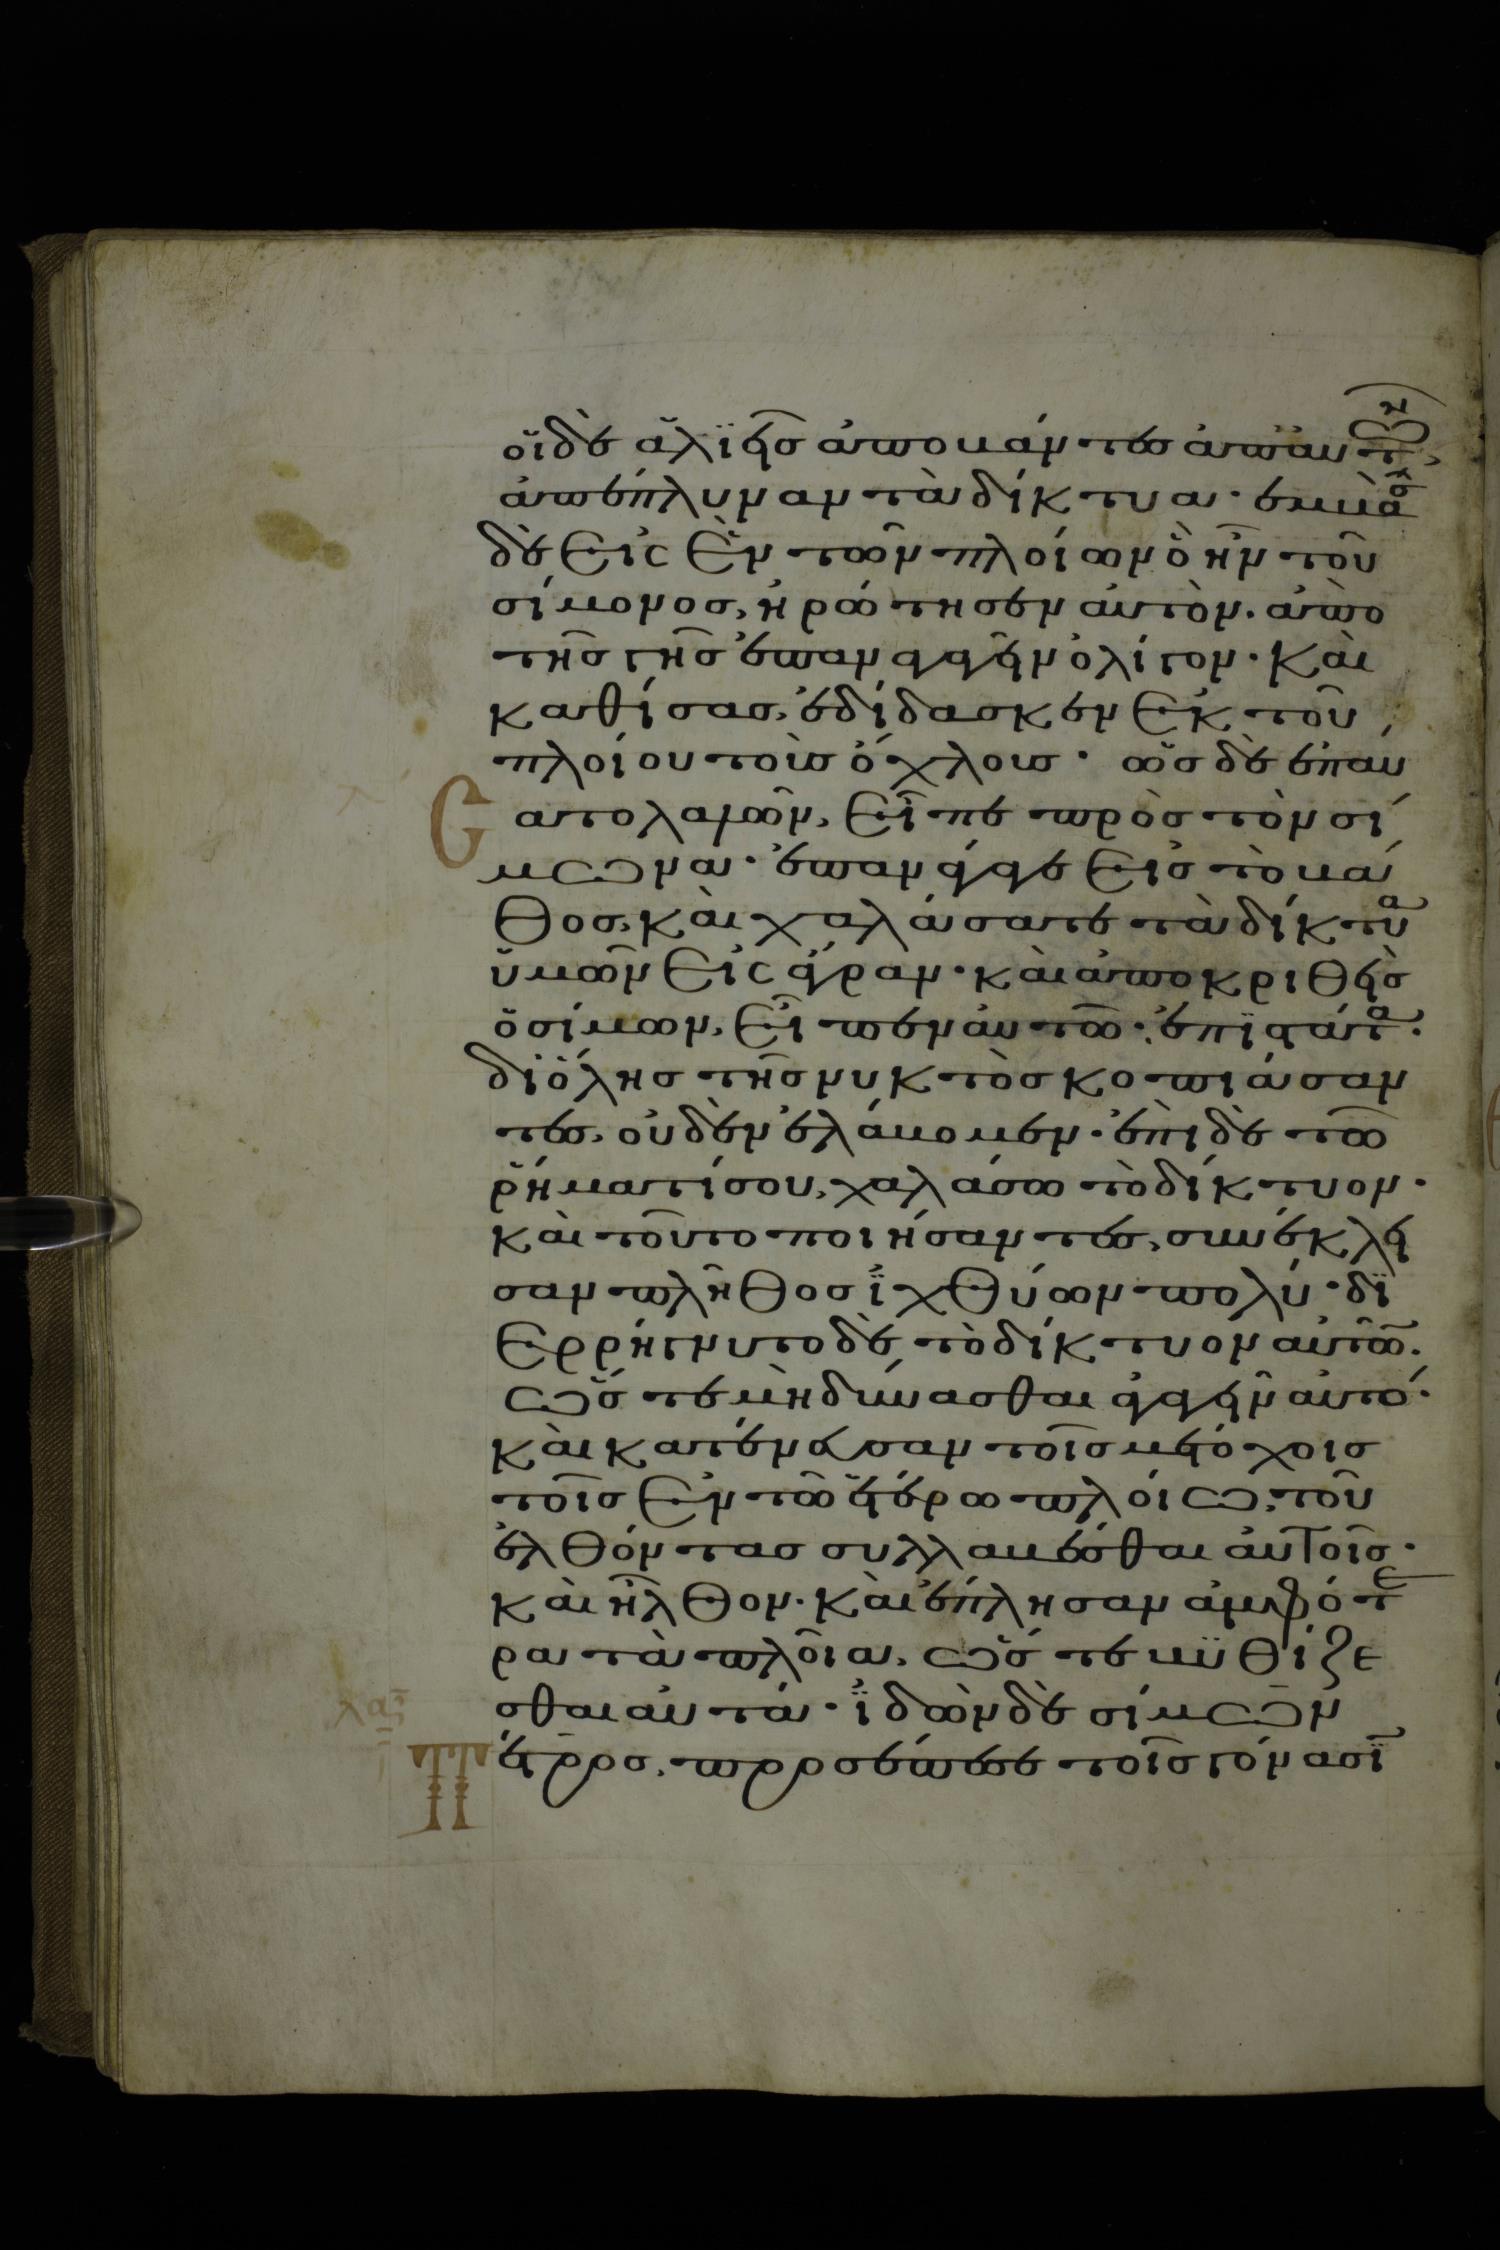 οἵδὲ ἁλϊεῖσ ἀποβάντεσ ἀπ αὐτῶν,
ἀπέπλυναν τὰ δίκτυα· ἐμβὰσ
δὲ εἰς ἓν τῶν πλοίων ὃ ἦν τοῦ
σίμονοσ, ἠρώτησεν ἀυτὸν. ἀπὸ
τῆσ γῆσ ἐπαναγαγεῖν ὀλίγον· καὶ
καθίσασ, ἐδίδασκεν ἐκ τοῦ
πλοίου τοὺσ ὄχλουσ· ὡσ δὲ ἐπαύ
σατο λαλῶν, εἶπε πρὸσ τὸν σί
μωνα· ἐπανάγαγε εἰσ τὸ βά
θοσ, καὶ χαλάσατε τὰ δίκτυα
ὑμῶν εἰς ἄγραν· καὶ ἀποκριθεὶσ
ὁ σίμων, εἶπεν ἀυτῶ· ἐπϊστάτα·
δι ὅλησ τῆσ νυκτὸσ κοπιάσαν
τεσ, οὐδὲν ἐλάβομεν· ἐπὶ δὲ τῶ
ῥήματί σου, χαλάσω τὸ δίκτυον·
καὶ τοῦτο ποιήσαντεσ, συνέκλει
σαν πλῆθοσ ἰχθύων πολύ· δϊ
ερρήγνυτο δὲ τὸ δίκτυον αὐτῶν.
ὥστε μὴ δύνασθαι ἀγαγεῖν αὐτό·
καὶ κατένευσαν τοῖσ μετόχοισ
τοῖσ ἐν τῶ ἑτέρω πλοίω, τοῦ
ἐλθόντασ συλλαβέσθαι ἀυτοῖσ·
καὶ ἦλθον· καὶ ἔπλησαν ἀμφότε
ρα τὰ πλοῖα, ὥστε βϋθίζε
σθαι αὐτά· ἰδὼν δὲ σίμων
Πέτροσ, προσέπεσε τοῖσ γόνασϊ